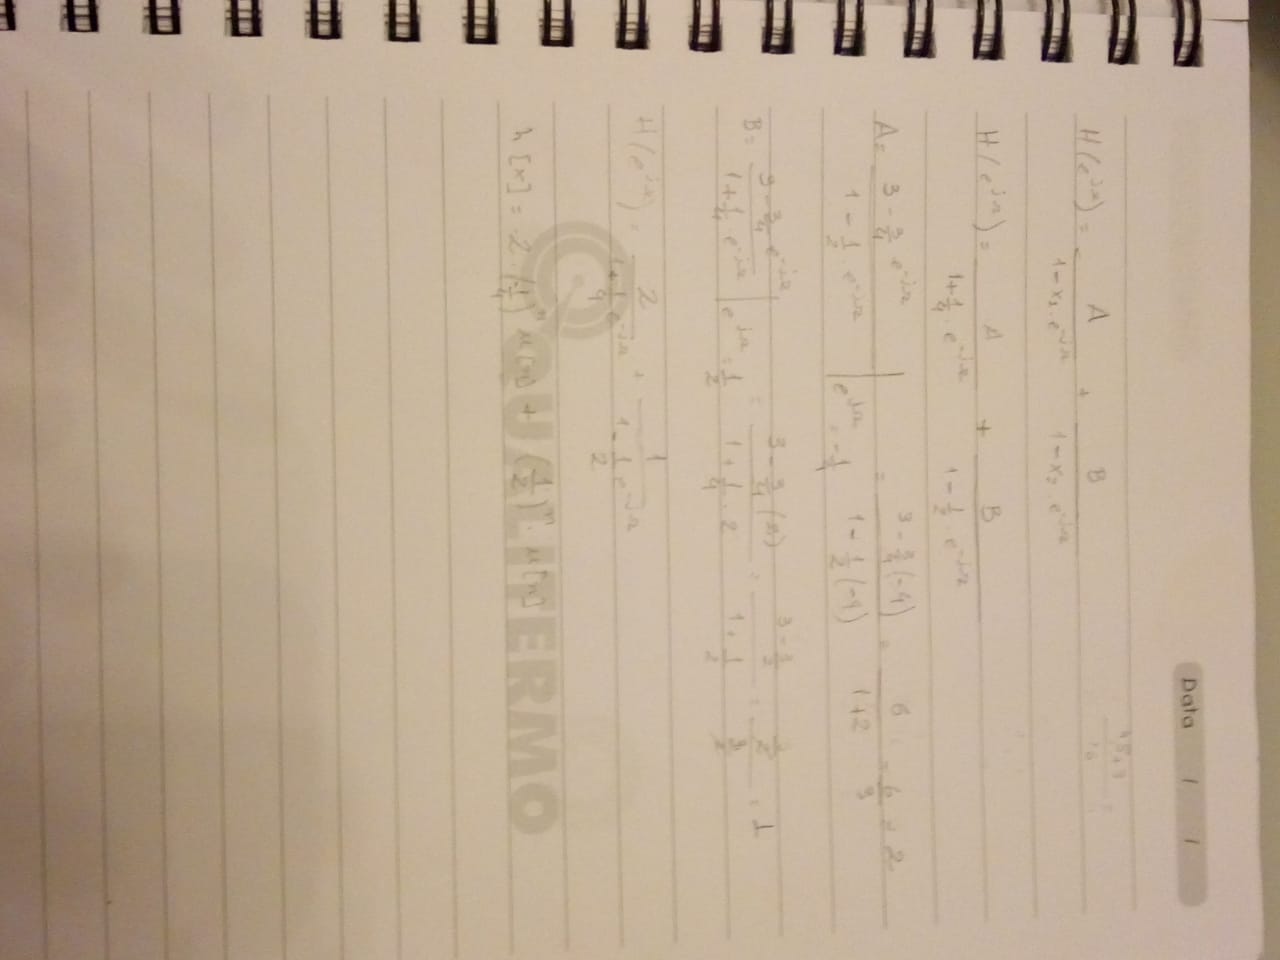 Data / /
H(e^jΩ) = A / (1 - x₁·e^-jΩ) + B / (1 - x₂·e^-jΩ)
H(e^jΩ) = A / (1 + 1/4·e^-jΩ) + B / (1 - 1/2·e^-jΩ)
A = (3 - 3/4 e^-jΩ) / (1 - 1/2·e^-jΩ) | e^jΩ = -1/4 = (3 - 3/4(-4)) / (1 - 1/2(-4)) = 6 / (1+2) = 6/3 = 2
B = (3 - 3/4 e^-jΩ) / (1 + 1/4·e^-jΩ) | e^jΩ = 1/2 = (3 - 3/4(2)) / (1 + 1/4·2) = (3 - 3/2) / (1 + 1/2) = (3/2) / (3/2) = 1
H(e^jΩ) = 2 / (1 + 1/4 e^-jΩ) + 1 / (1 - 1/2 e^-jΩ)
h[x] = 2·(1/4)^n u[n] + (1/2)^n·u[n]
QUALITERMO